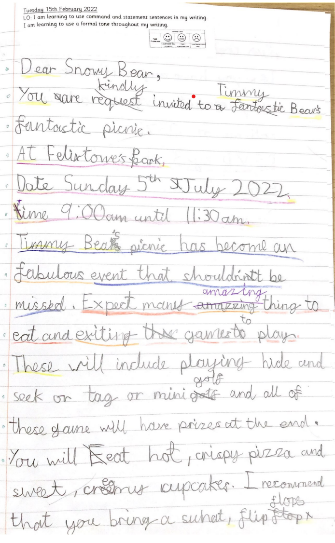 Tuesday 15th February 2022
LO I am learning to use command and statement sentences in my writing
I am learning to use a formal tone throughout my writing
Dear Snowy Bear,
kindly Timmy
You are request invited to a fantastic Bear's
fantastic picnic.
At Felixtowe Park,
Date Sunday 5th July 2022,
time 9:00am until 11:30am.
Timmy Bear's picnic has become an
fabulous event that shouldn't be
amazing
missed. Expect many amazeing thing to
to
eat and exiting the games to play.
These will include playing hide and
golf
seek or tag or mini and all of
these game will have prizes at the end.
You will eat hot, crispy pizza and
sweet, cupcakes. I recommend
flops
that you bring a sunhat, flip flop